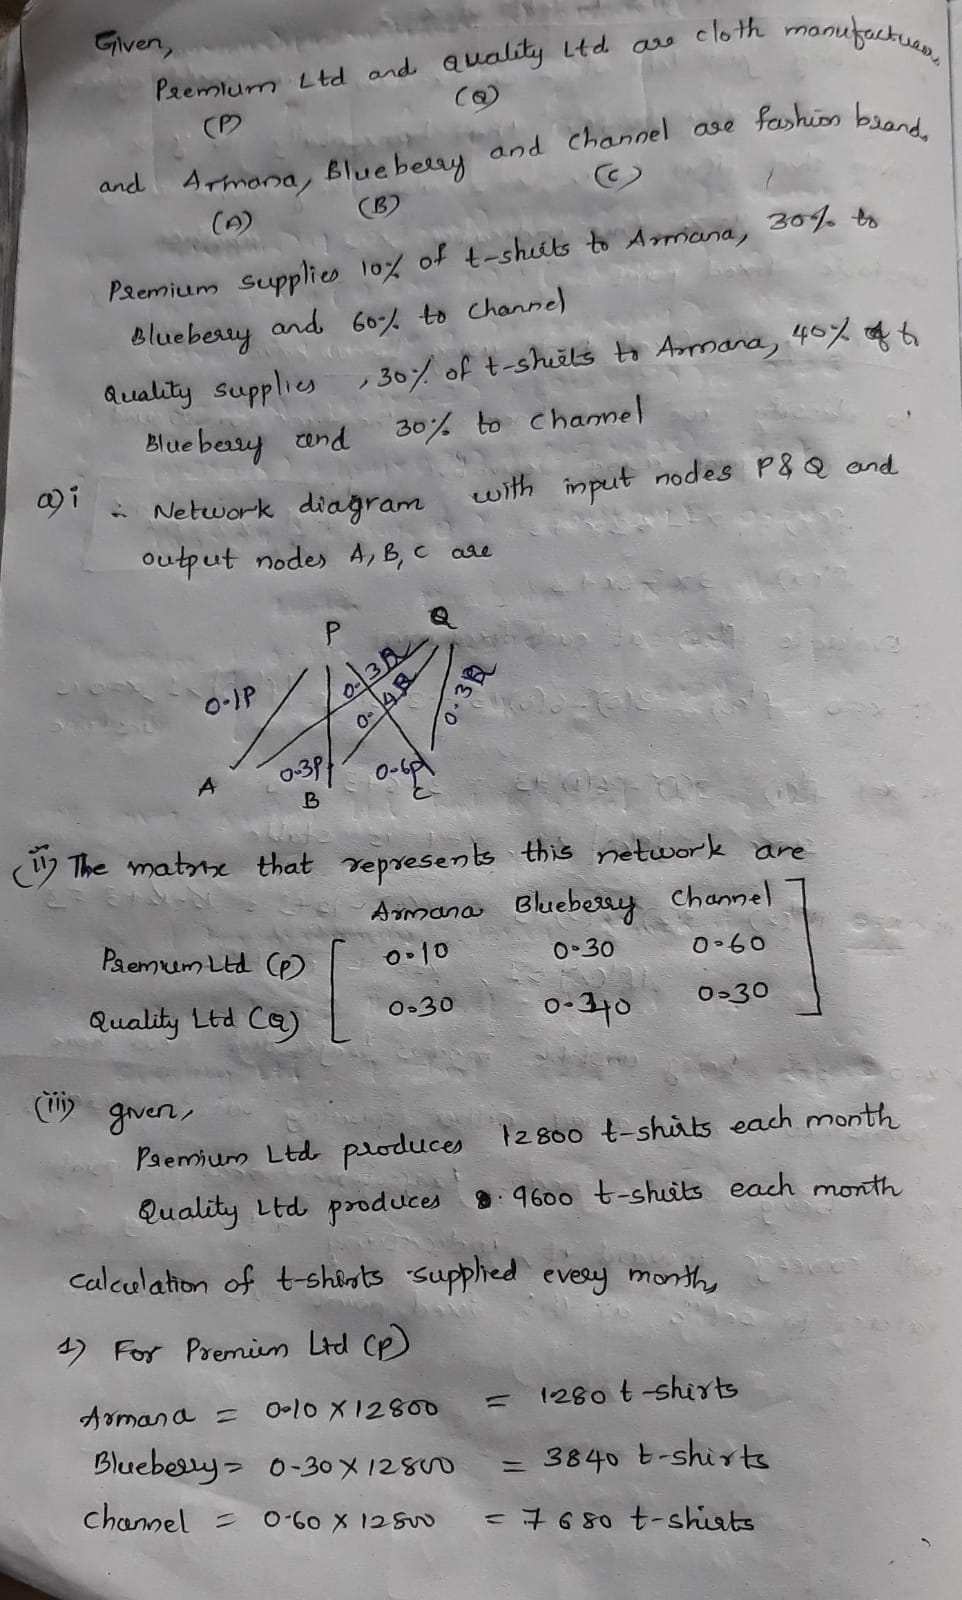 Given,
Premium Ltd and Quality Ltd are cloth manufactures
(P) (Q)
and Armana, Blueberry and Channel are fashion brands
(A) (B) (C)
Premium supplies 10% of t-shirts to Armana, 30% to
Blueberry and 60% to Channel
Quality supplies , 30% of t-shirts to Armana, 40% to
Blueberry and 30% to Channel
a) i ∴ Network diagram with input nodes P & Q and
output nodes A, B, C are
P Q
0.1P 0.3Q 0.4Q 0.3Q
A 0.3P 0.6P
B C
(ii) The matrix that represents this network are
Armana Blueberry Channel
Premium Ltd (P) 0.10 0.30 0.60
Quality Ltd (Q) 0.30 0.40 0.30
(iii) given,
Premium Ltd produces 12800 t-shirts each month
Quality Ltd produces 9600 t-shirts each month
Calculation of t-shirts supplied every month,
1) For Premium Ltd (P)
Armana = 0.10 X 12800 = 1280 t-shirts
Blueberry = 0.30 X 12800 = 3840 t-shirts
Channel = 0.60 X 12800 = 7680 t-shirts